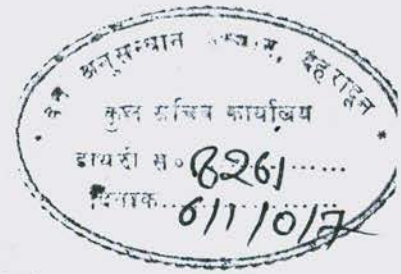 वन अनुसन्धान संस्थान, देहरादून
कुल सचिव कार्यालय
डायरी सं० 8261
दिनांक 6/11/07